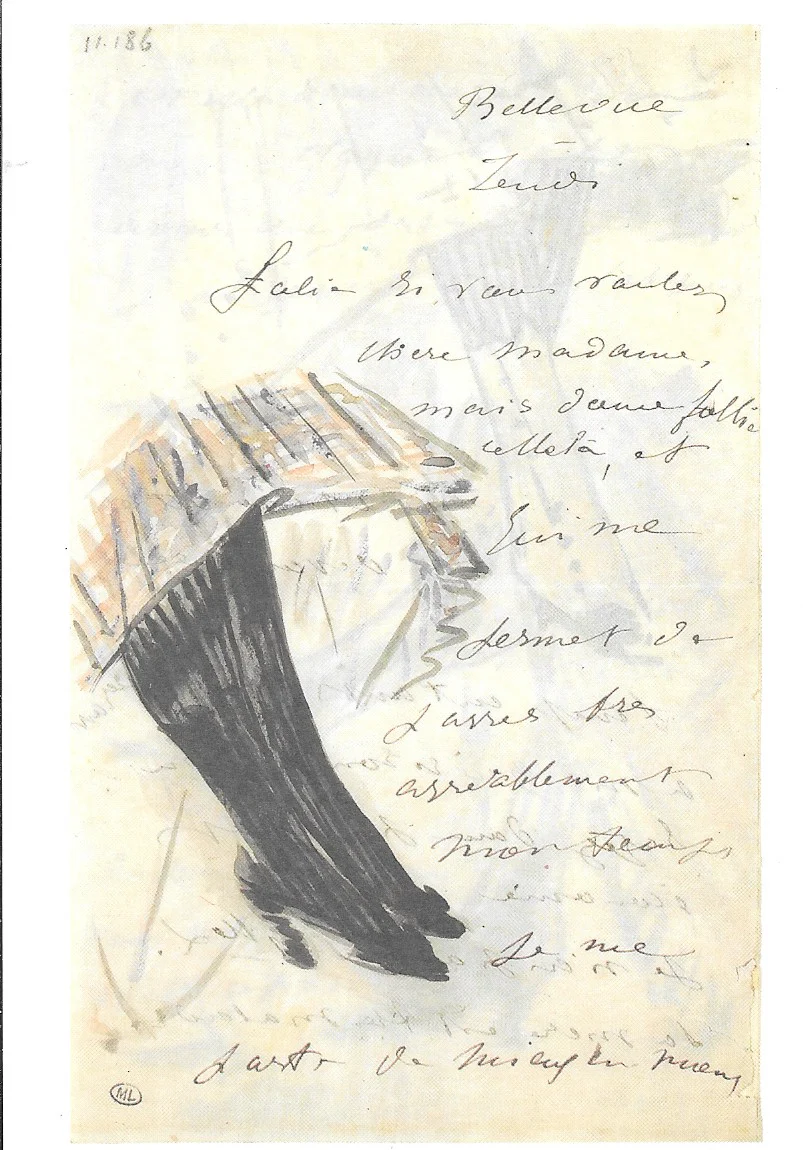 11.186
Bellevue
Jeudi
Folie si vous voulez
chere madame,
mais douce follie
celle là, et
qui me
permet de
passer très
agréablement
mon temps
Je me
porte de mieux en mieux
ML